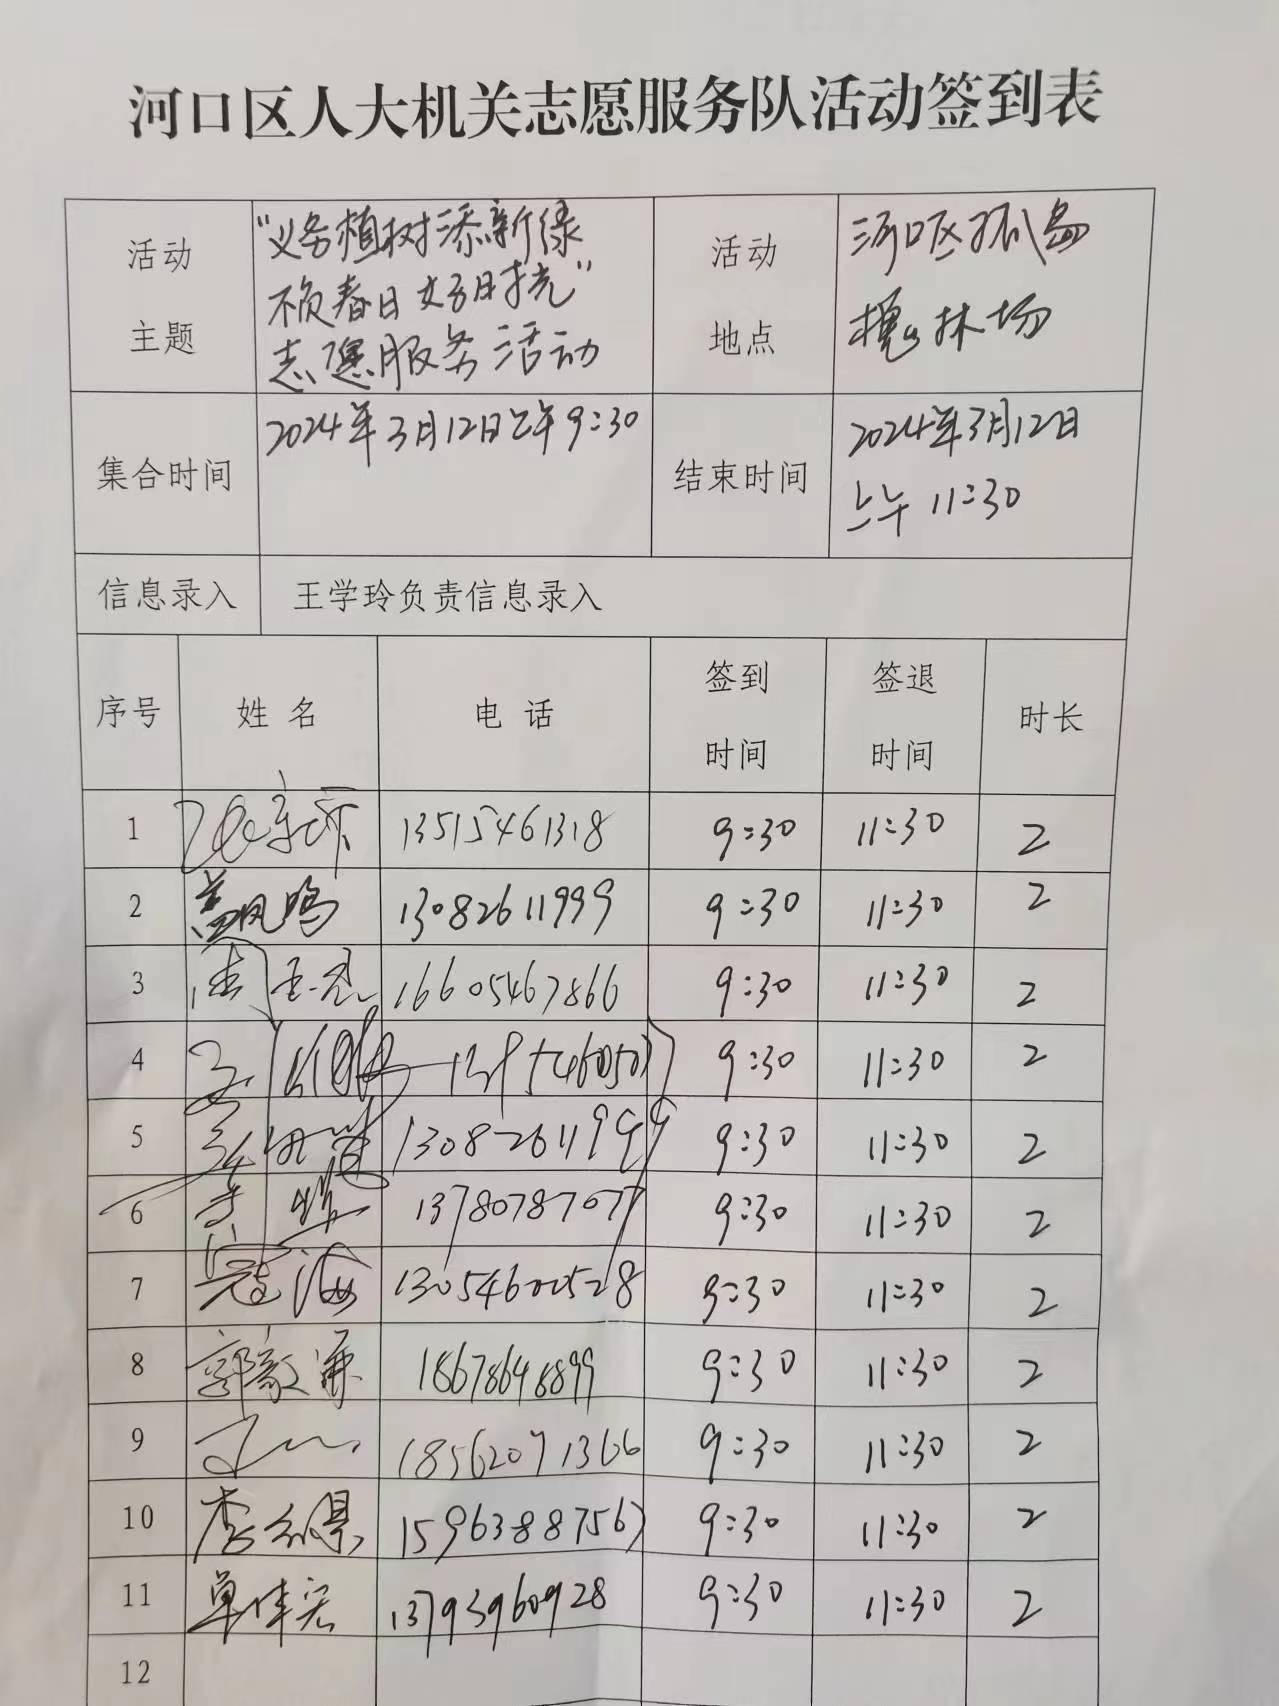 河口区人大机关志愿服务队活动签到表
活动
主题
“义务植树添新绿
不负春日好时光”
志愿服务活动
活动
地点
河口区孤岛
槐林场
集合时间
2024年3月12日上午9:30
结束时间
2024年3月12日
上午 11:30
信息录入 王学玲负责信息录入
序号 姓名 电话 签到时间 签退时间 时长
1 13515461318 9:30 11:30 2
2 盖凤鸣 13082611999 9:30 11:30 2
3 16605467866 9:30 11:30 2
4 9:30 11:30 2
5 13082611999 9:30 11:30 2
6 13780787077 9:30 11:30 2
7 寇海 13054600528 9:30 11:30 2
8 18678648899 9:30 11:30 2
9 18562071366 9:30 11:30 2
10 15963887567 9:30 11:30 2
11 单体宏 13793960928 9:30 11:30 2
12